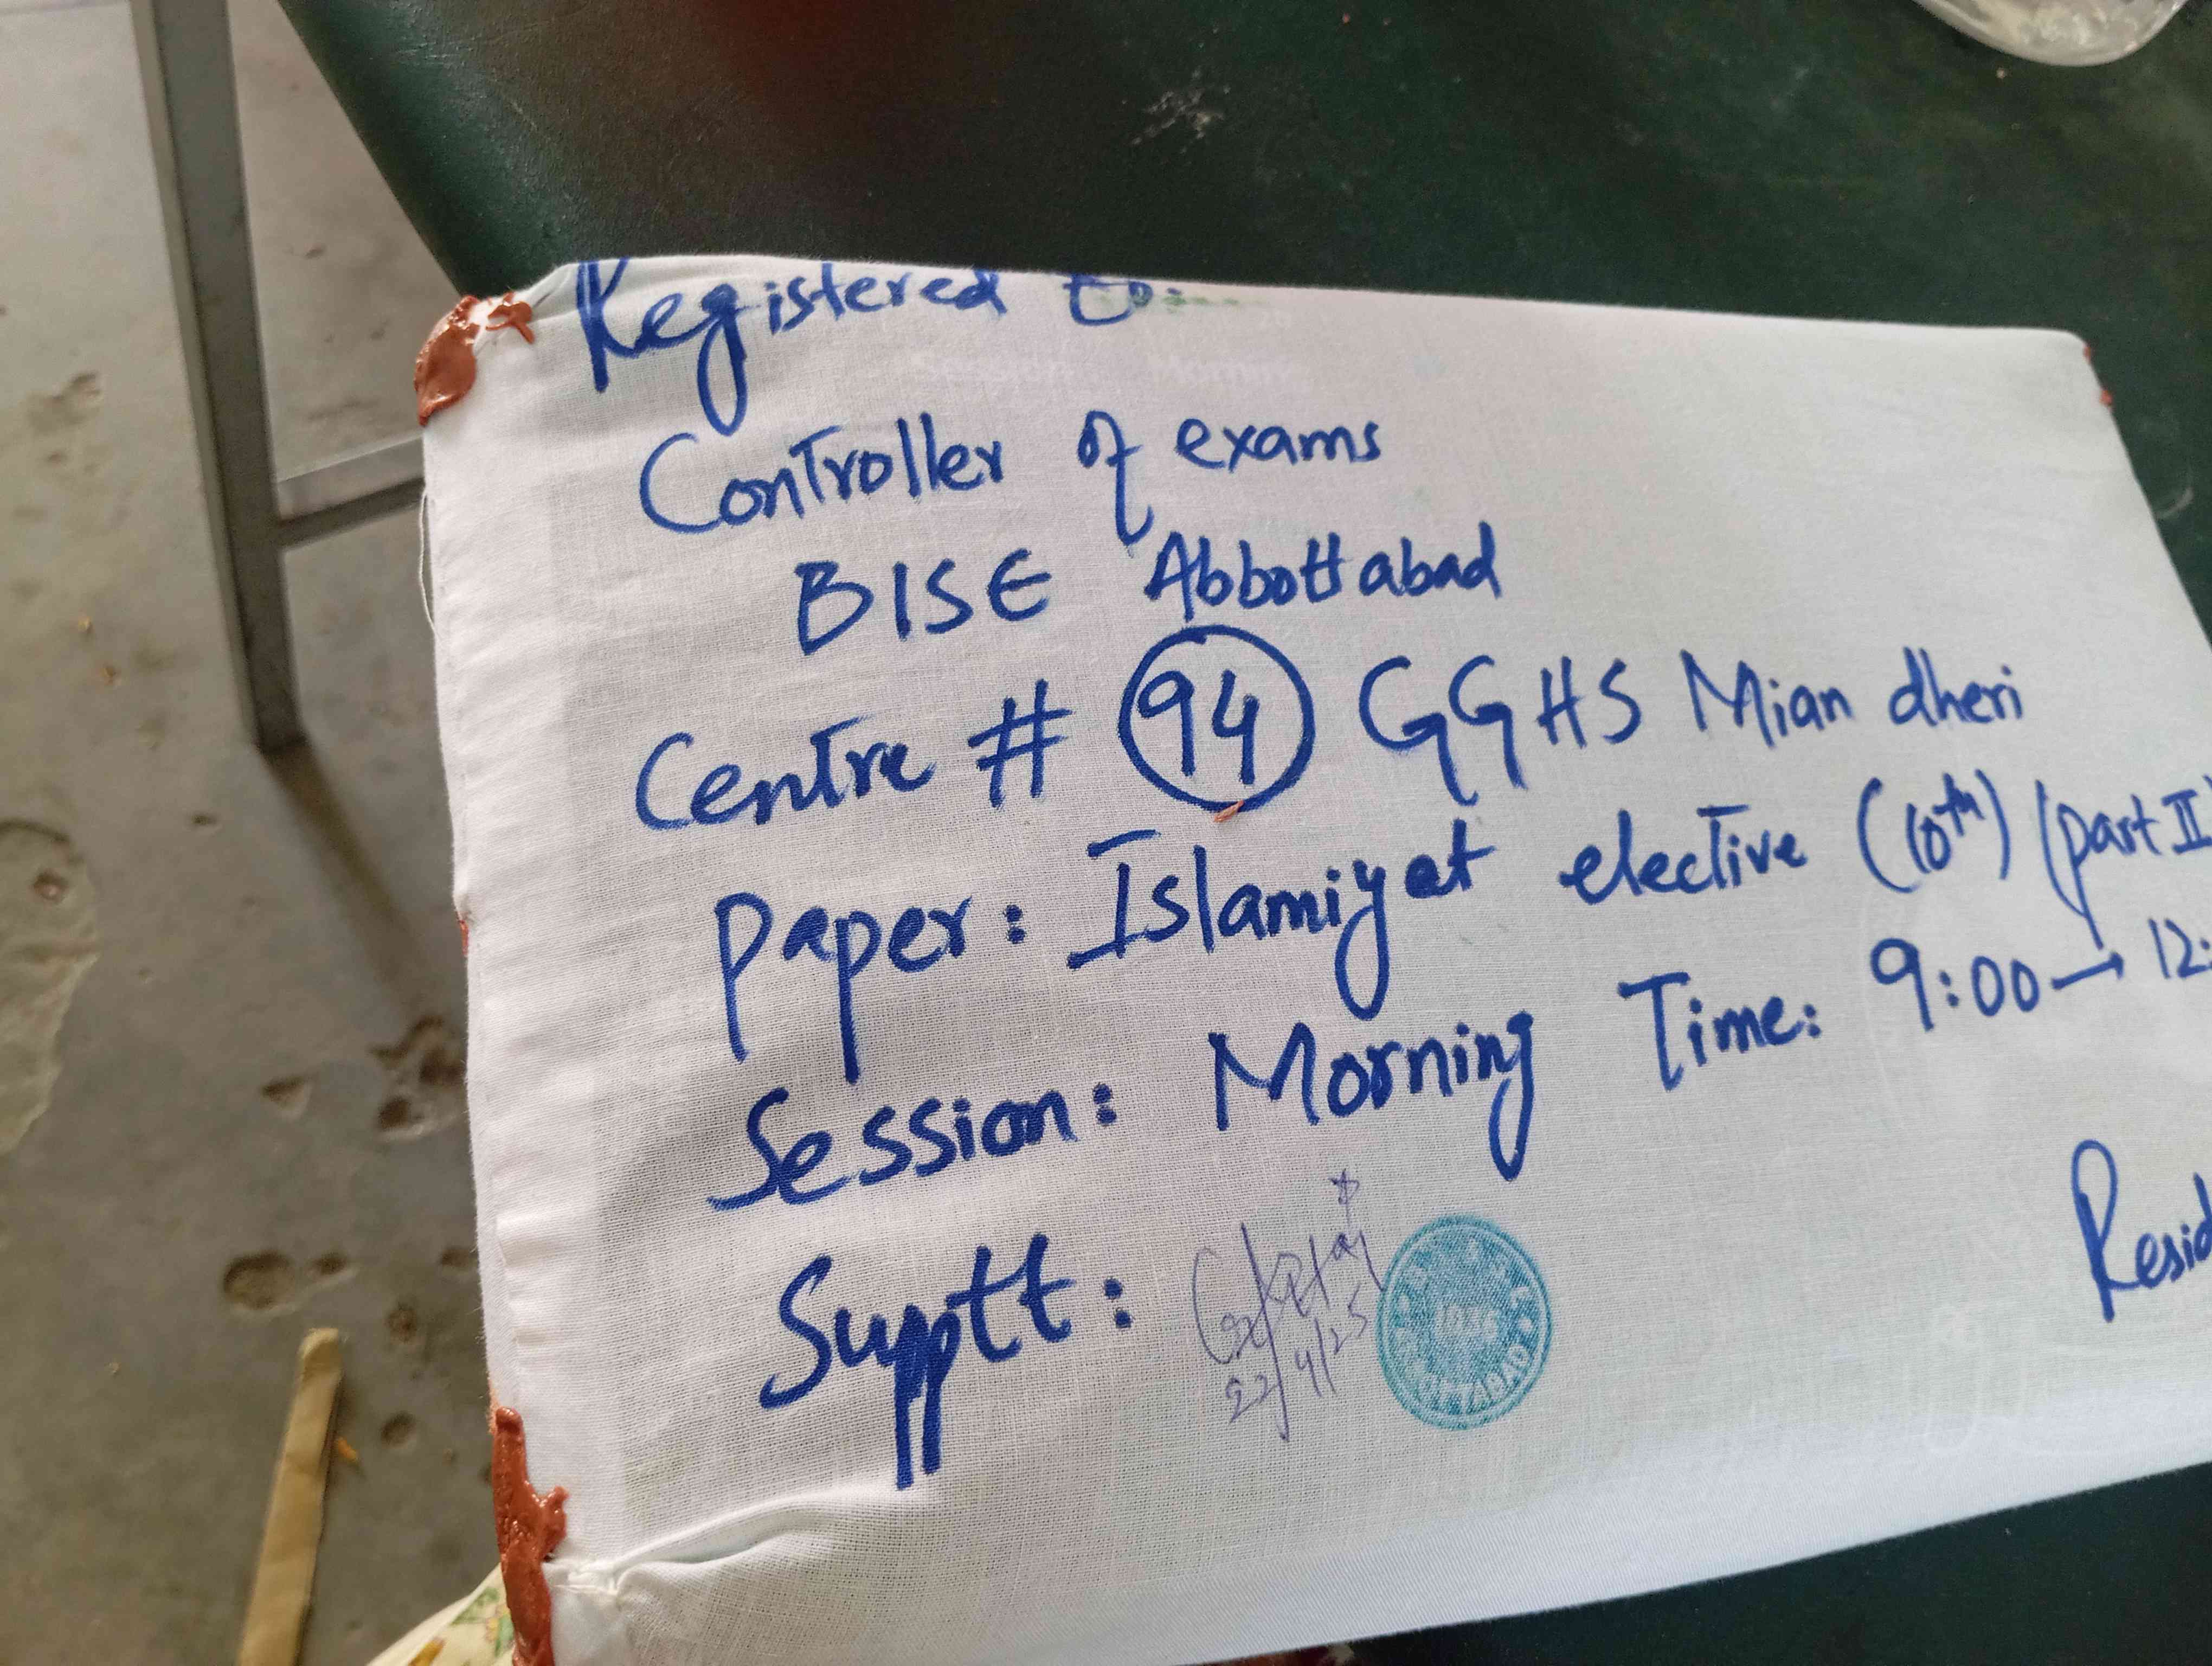 Registered to:
Controller of exams
BISE Abbottabad
Centre # 94 GGHS Mian dheri
Paper: Islamiyat elective (10th) (part II
Session: Morning Time: 9:00 → 12:
Resid
Supptt:
22/4/25